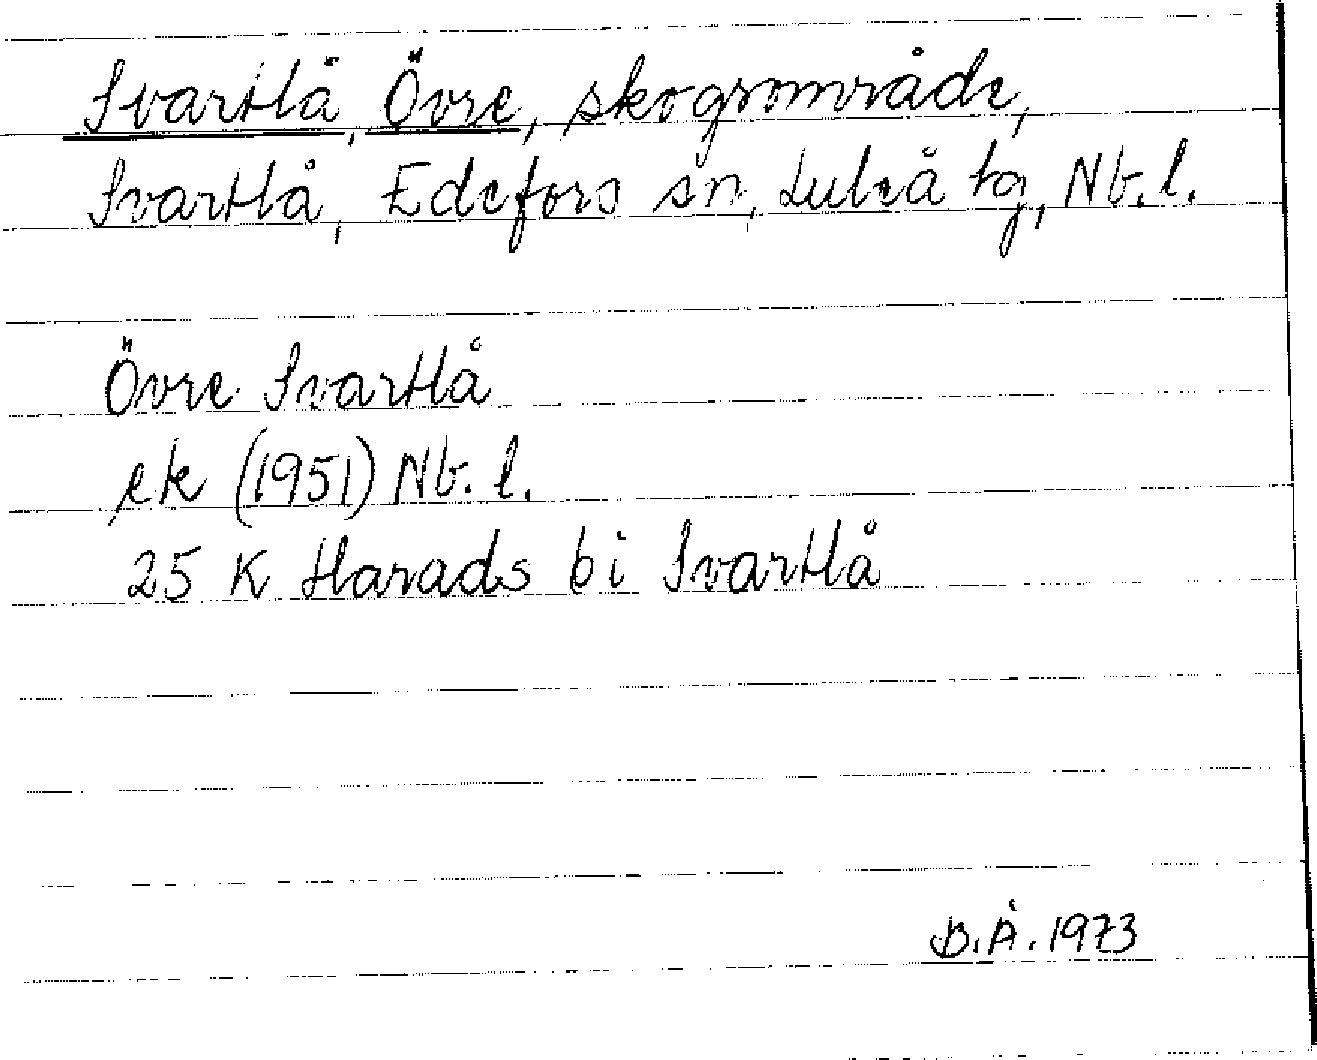 Svartlå, Övre, skogsområde,
Svartlå, Edefors sn, Luleå tg, Nb. l.
Övre Svartlå
ek (1951) Nb. l.
25 K Harads bi Svartlå
B.Å. 1973